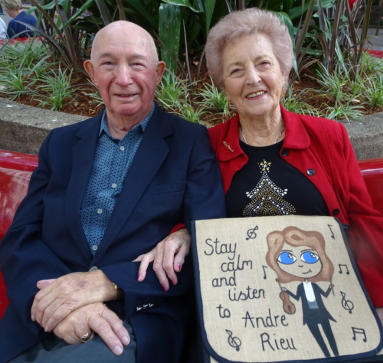 Stay
calm
and
listen
to
Andre
Rieu